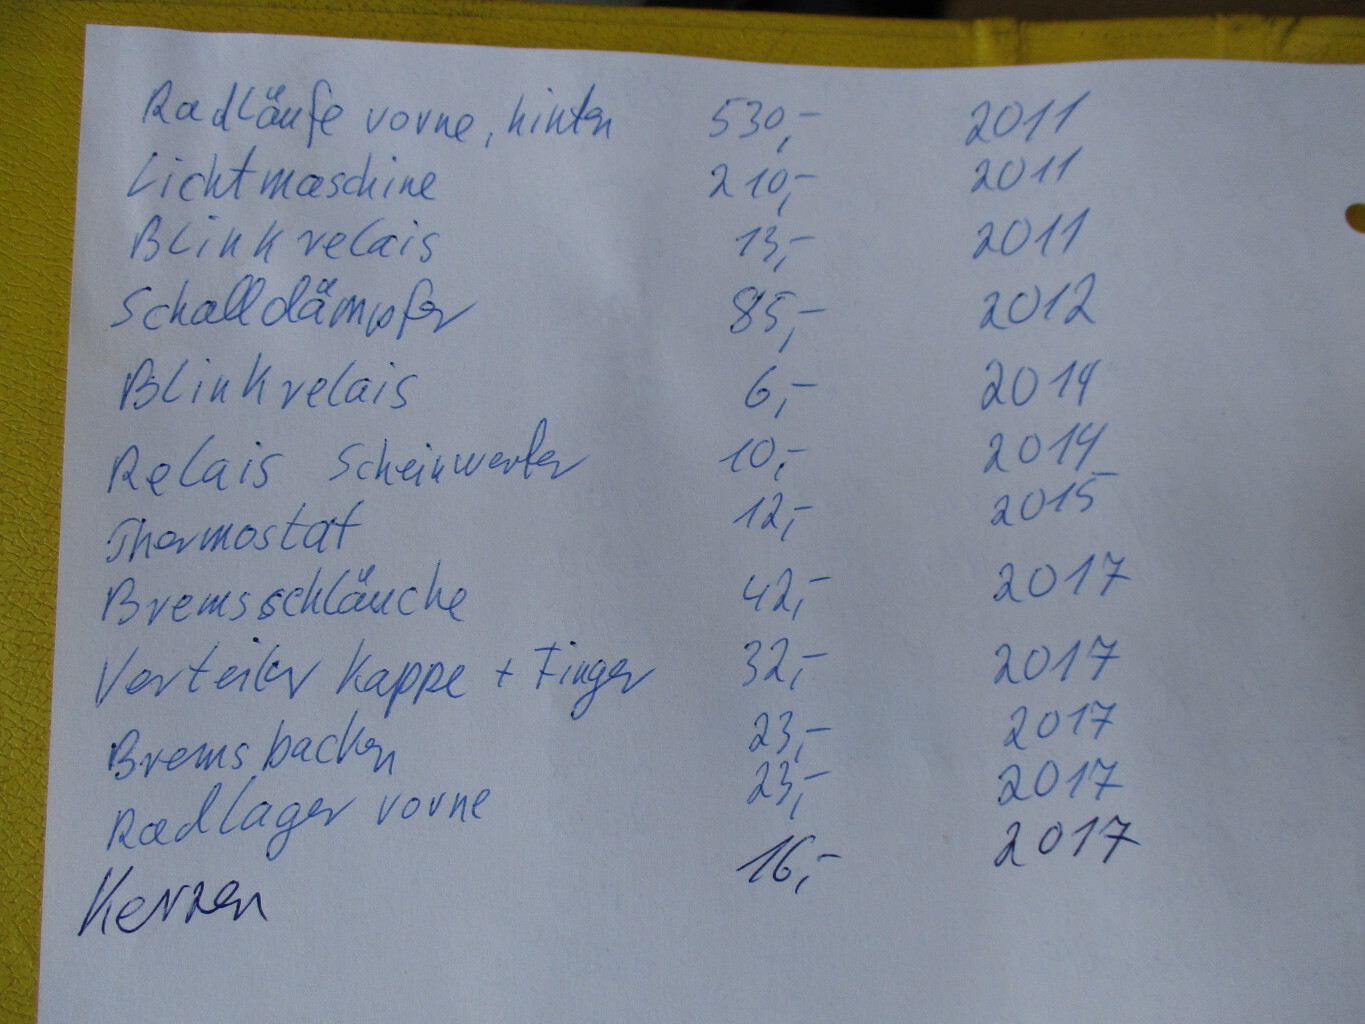 Radläufe vorne, hinten 530,- 2011
Lichtmaschine 210,- 2011
Blinkrelais 13,- 2011
Schalldämpfer 85,- 2012
Blinkrelais 6,- 2014
Relais Scheinwerfer 10,- 2014
Thermostat 12,- 2015
Bremsschläuche 42,- 2017
Verteiler Kappe + Finger 32,- 2017
Bremsbacken 23,- 2017
Radlager vorne 23,- 2017
Kerzen 16,- 2017